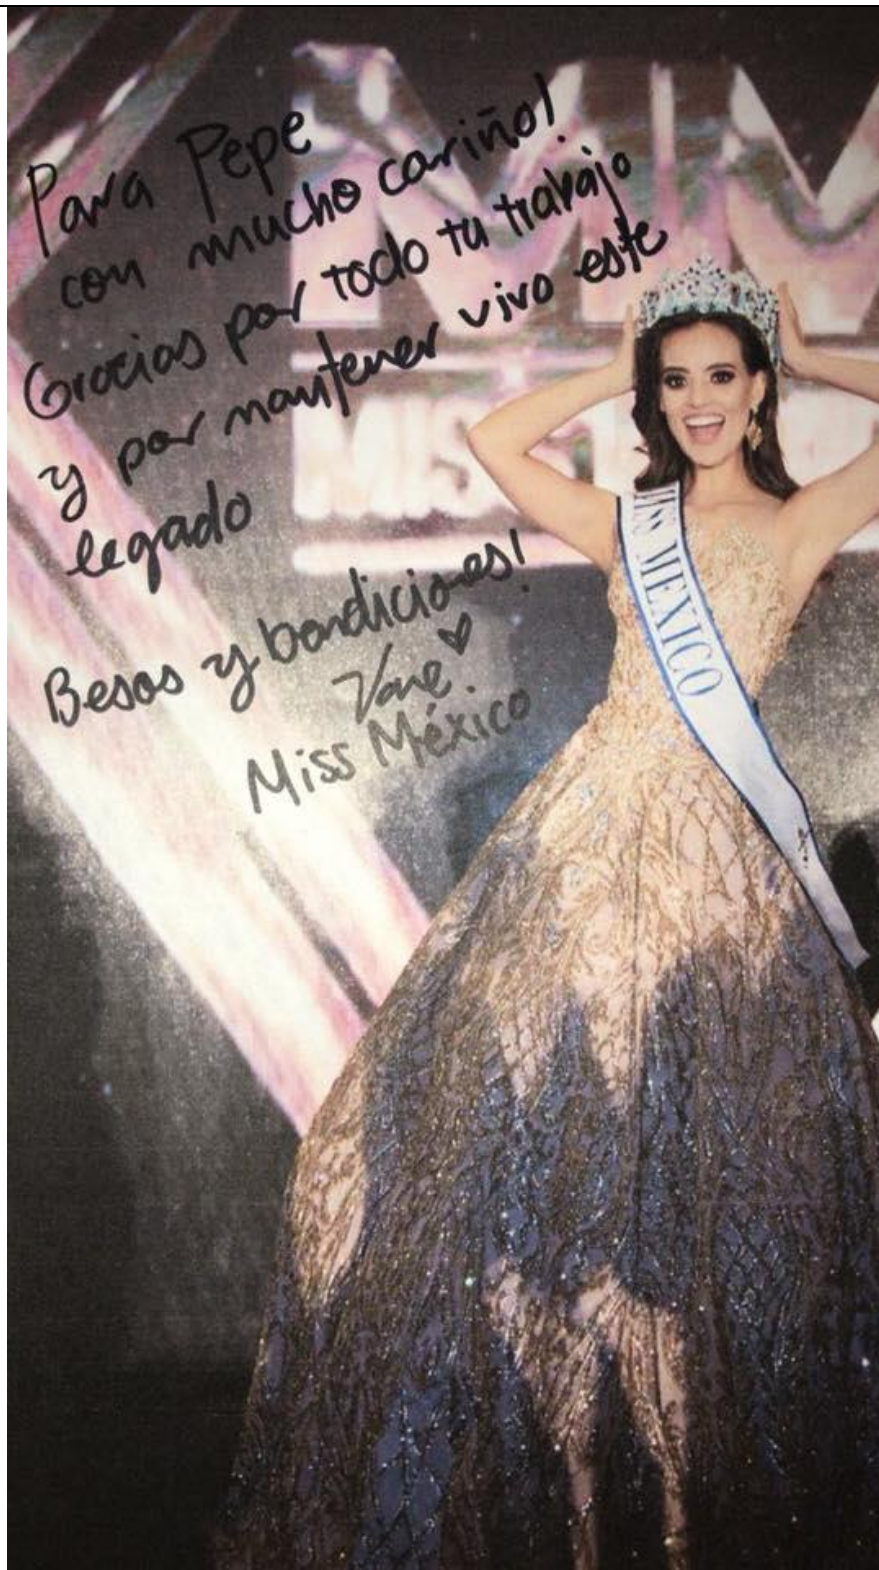 Para Pepe
con mucho cariño!
Gracias por todo tu trabajo
y por mantener vivo este
legado
Besos y bendiciones!
Vane.
Miss México
MM
MISS
MISS MEXICO